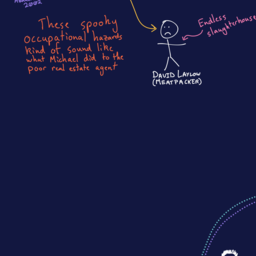 2002
These spooky
occupational hazards
kind of sound like
what Michael did to the
poor real estate agent
Endless
slaughterhouse
DAVID LAYLOW
(MEATPACKER)